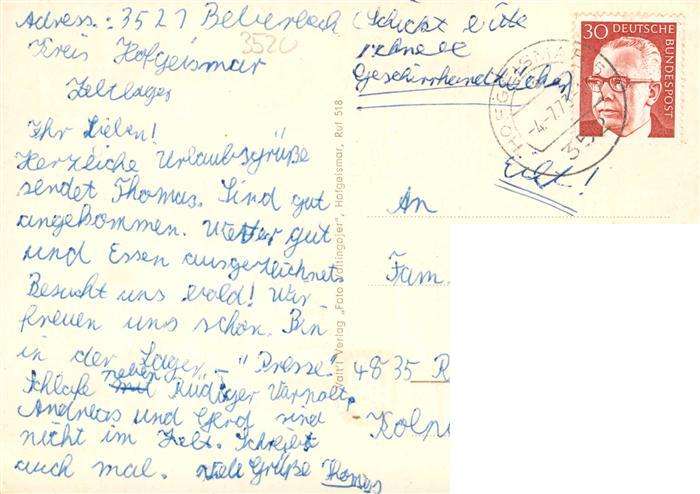 Adress.: 3521 Beberbeck
3520
Kreis Hofgeismar
Zeltlager
Ihr Lieben!
Herzliche Urlaubsgrüße
sendet Thomas. Sind gut
angekommen. Wetter gut
und Essen ausgezeichnet.
Besucht uns bald! Wir
freuen uns schon. Bin
in der Lager - "Presse".
Schlafe neben Rüdiger Varnholt,
Andreas und Gerd sind
nicht im Zelt. Schreibt
auch mal. Viele Grüße Thomas
(Schickt bitte
schnell
Geschirrhandtücher)
Eilt!
30 DEUTSCHE BUNDESPOST
HOFGEISMAR
-4.-7.73
352
Verlag „Foto Valtingojer", Hofgeismar, Ruf 518
An
Fam.
4835 R
Kolpi